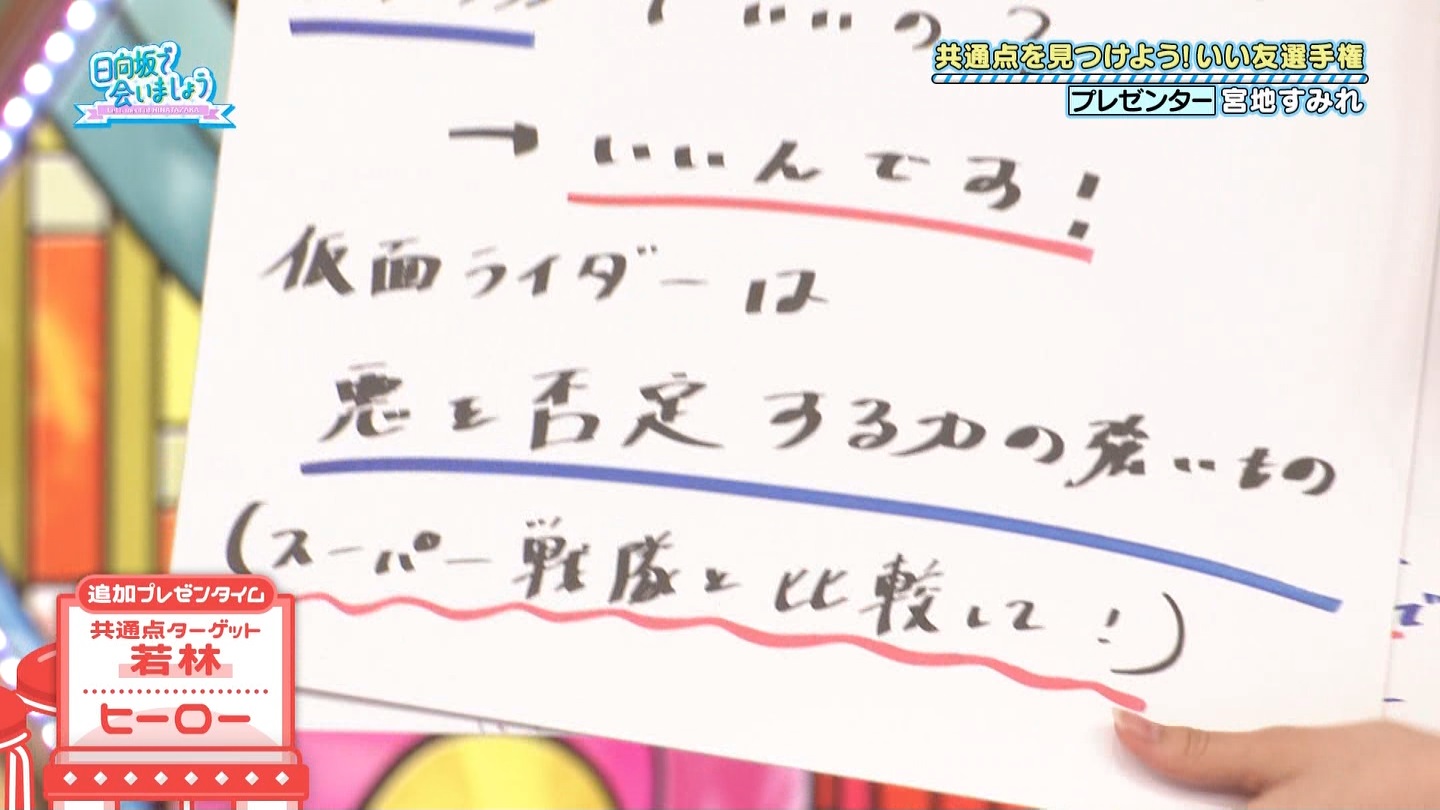 日向坂で
会いましょう
共通点を見つけよう!いい友選手権
プレゼンター 宮地すみれ
でいいの?
→いいんです!
仮面ライダーは
悪を否定する力の強いもの
(スーパー戦隊と比較して!)
で
追加プレゼンタイム
共通点ターゲット
若林
ヒーロー